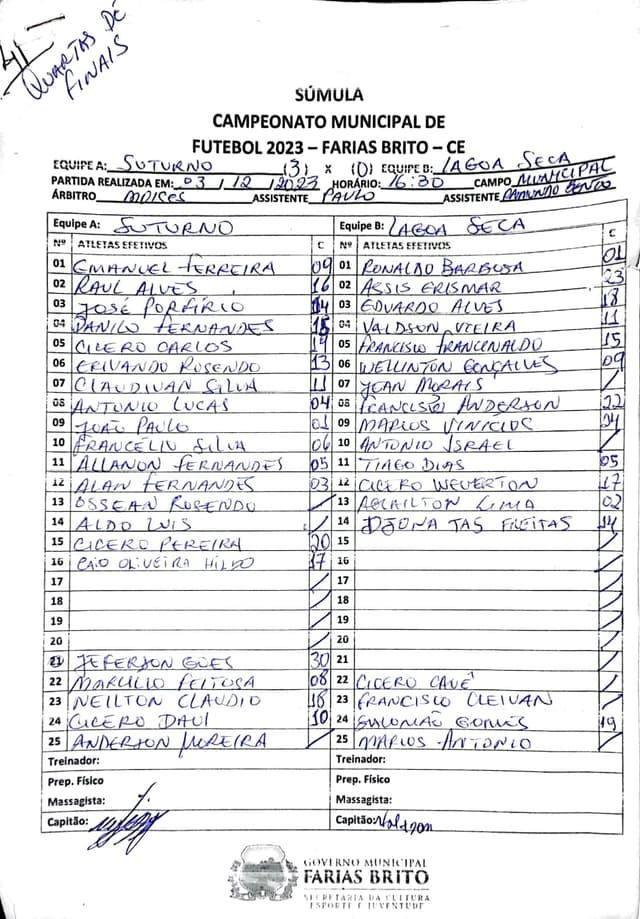 4ª QUARTAS DE
FINAIS
SÚMULA
CAMPEONATO MUNICIPAL DE
FUTEBOL 2023 – FARIAS BRITO – CE
EQUIPE A: SUTURNO (3) X (0) EQUIPE B: LAGOA SECA
PARTIDA REALIZADA EM: 03 / 12 / 2023 HORÁRIO: 16:30 CAMPO MUNICIPAL
ÁRBITRO MOISES ASSISTENTE PAULO ASSISTENTE RAIMUNDO
Equipe A: SUTURNO Equipe B: LAGOA SECA
Nº ATLETAS EFETIVOS C Nº ATLETAS EFETIVOS C
01 EMANUEL FERREIRA 09 01 RONALDO BARBOSA 01
02 RAUL ALVES 16 02 ASSIS ERISMAR 23
03 JOSÉ PORFÍRIO 14 03 EDUARDO ALVES 18
04 DANILO FERNANDES 15 04 VALDSON VIEIRA 11
05 CICERO CARLOS 19 05 FRANCISCO FRANCINALDO 15
06 ERIVANDO ROSENDO 13 06 WELLINTON GONÇALVES 09
07 CLAUDIVAN SILVA 11 07 JEAN MORAIS /
08 ANTONIO LUCAS 04 08 FRANCISCO ANDERSON 22
09 JOÃO PAULO 01 09 MARCOS VINICIUS 24
10 FRANCÉLIO SILVA 06 10 ANTONIO ISRAEL /
11 ALLANON FERNANDES 05 11 TIAGO DIAS 05
12 ALAN FERNANDES 03 12 CICERO WEVERTON 17
13 OSSEAN ROSENDO / 13 LIMA 02
14 ALDO LUIS / 14 DJONATAS FREITAS 14
15 CICERO PEREIRA 20 15 /
16 CAIO OLIVEIRA 17 16 /
17 / 17 /
18 / 18 /
19 / 19 /
20 / 20 /
21 JEFERSON GOES 30 21 /
22 MARCILIO FEITOSA 08 22 CICERO CAUÊ /
23 NEILTON CLAUDIO 18 23 FRANCISCO CLEIVAN /
24 CICERO DAVI 10 24 SALOMÃO GOMES 19
25 ANDERSON MOREIRA / 25 MARCOS ANTONIO /
Treinador: Treinador:
Prep. Físico Prep. Físico
Massagista: Massagista:
Capitão: Capitão: Valdson
GOVERNO MUNICIPAL
FARIAS BRITO
SECRETARIA DA CULTURA
ESPORTE E JUVENTUDE